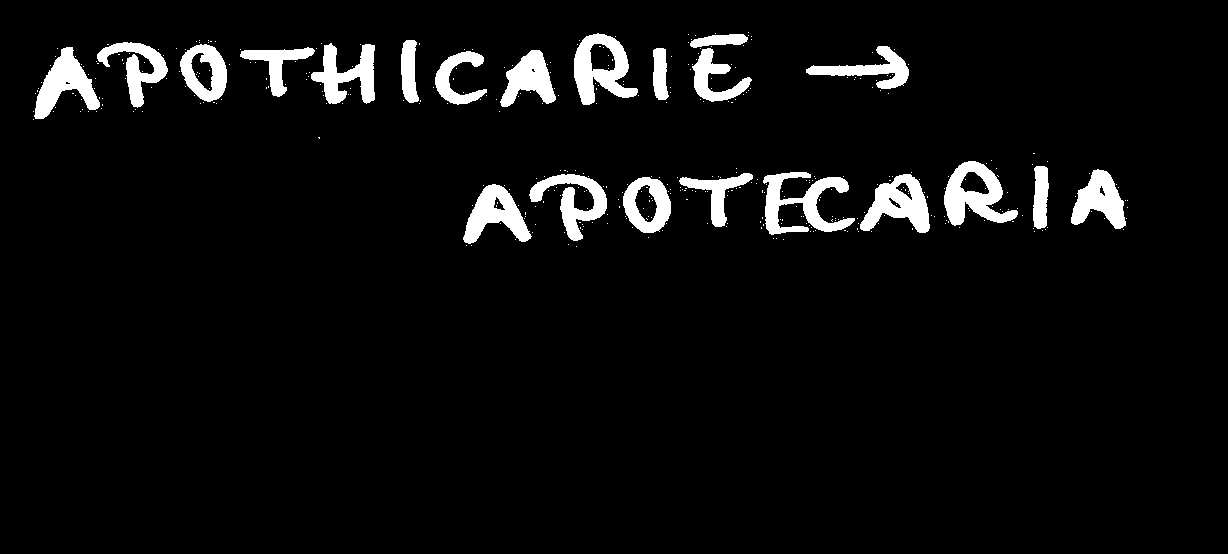 APOTHICARIE →
APOTECARIA